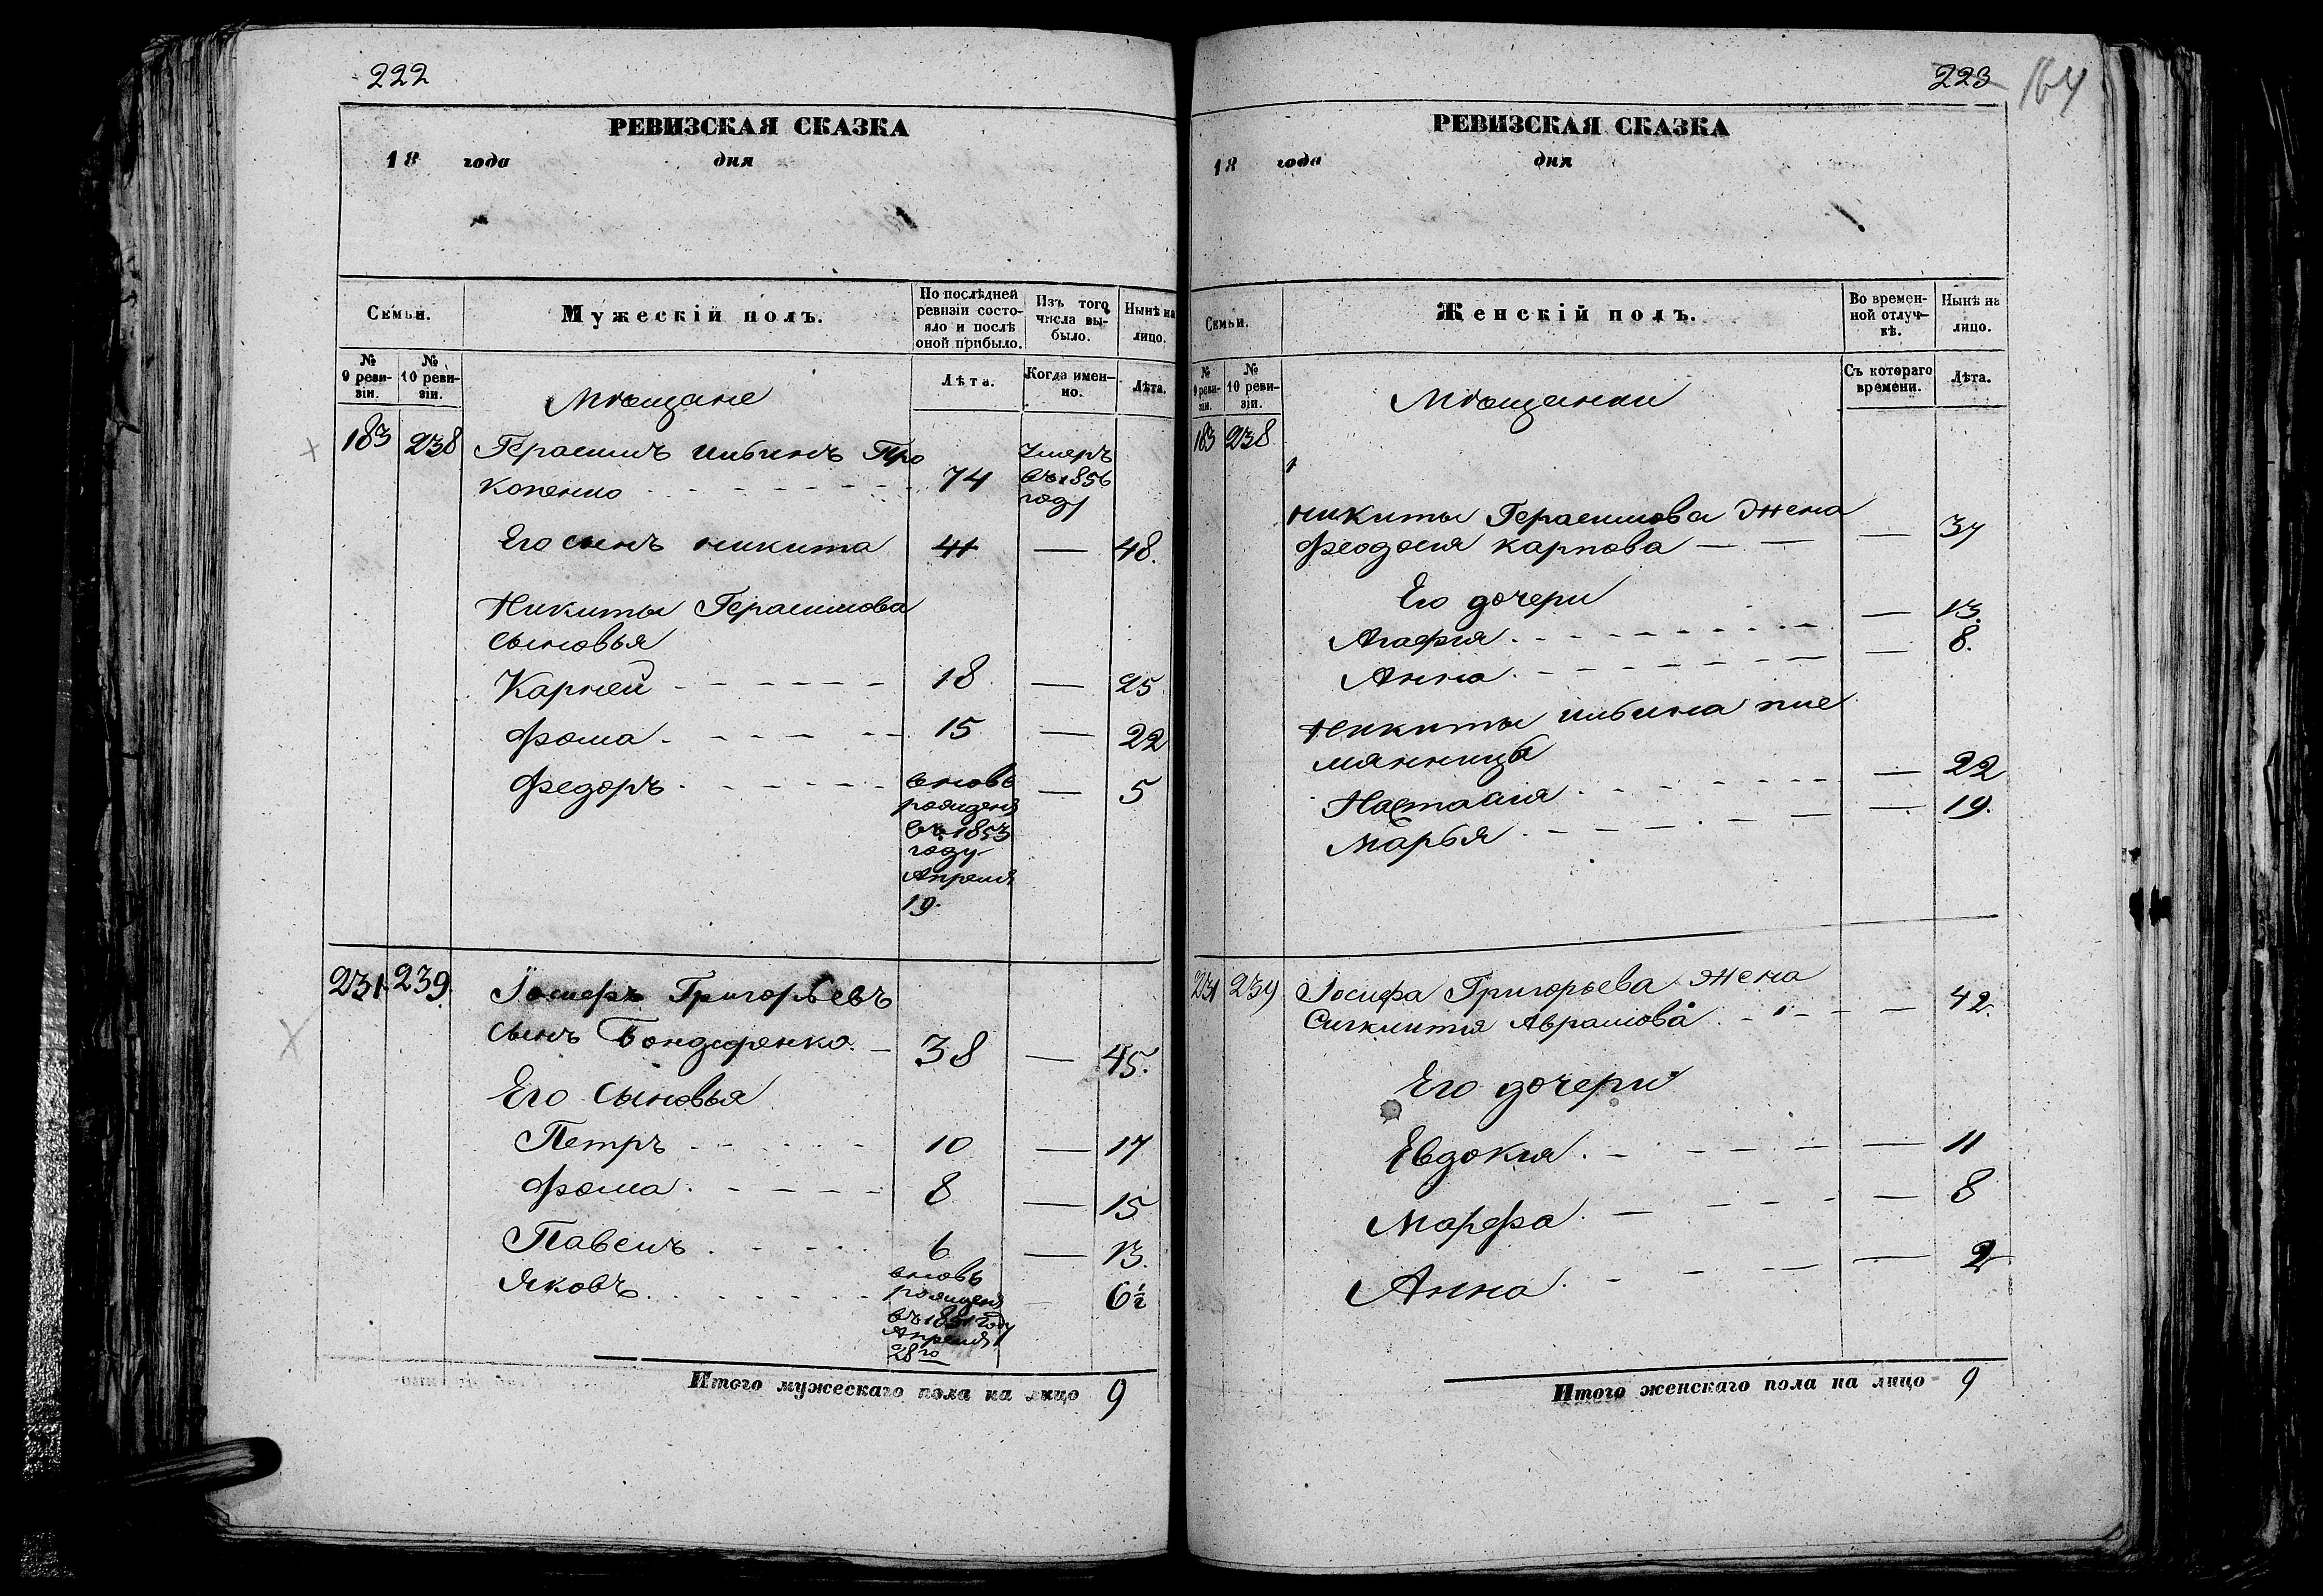 222
РЕВИЗСКАЯ СКАЗКА
18 года дня
Семьи.
Мужескій полъ.
По послѣдней ревизіи состояло и послѣ оной прибыло.
Изъ того числа выбыло.
Нынѣ на лицо.
№ 9 ревизіи.
№ 10 ревизіи.
Лѣта.
Когда именно.
Лѣта.
Мѣщане
183 238 Герасимъ Ильинъ Про
копенко 74 Умеръ въ 1856 году
Его сынъ Никита 41 — 48.
Никиты Герасимова
сыновья
Карней 18 — 25
Фома 15 — 22
Федоръ вновь — 5
рожденъ
въ 1853
году
Апреля
19.
231 239. Іосифъ Григорьевъ
сынъ Бондаренко 38 — 45.
Его сыновья
Петръ 10 — 17
Фома 8 — 15
Павелъ 6 — 13.
Яковъ вновь 6½
рожденъ
въ 1851 году
Апреля
28го
Итого мужескаго пола на лицо 9
223
164
РЕВИЗСКАЯ СКАЗКА
18 года дня
Семьи.
Женскій полъ.
Во временной отлучкѣ.
Нынѣ на лицо.
№ 9 ревизіи.
№ 10 ревизіи.
Съ котораго времени.
Лѣта.
Мѣщанки
183 238
Никиты Герасимова жена
Феодосія Карпова — 37
Его дочери
Агафія — 13.
Анна — 8.
Никиты Ильина пле
мянницы
Настасія — 22
Марья — 19.
231 239 Іосифа Григорьева жена
Аврамова — 42.
Его дочери
Евдокія — 11
Марфа — 8
Анна — 2
Итого женскаго пола на лицо 9